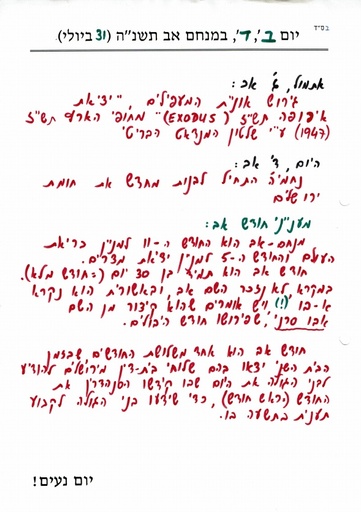 בס״ד
יום ב׳, ד׳, במנחם אב תשנ״ה (31 ביולי).
אתמול, ג׳ אב:
גירוש אונית המעפילים, ״יציאת
אירופה תש״ז (EXODUS)״ מחופי הארץ תש״ז
(1947) ע״י שלטון המנדאט הבריטי
היום, ד׳ אב:
נחמיה התחיל לבנות מחדש את חומת
ירושלים
מעניני חודש אב:
מנחם-אב הוא החודש ה-11 למנין בריאת
העולם והחודש ה-5 למנין יציאת מצרים.
חודש אב הוא תמיד בן 30 יום (=חודש מלא).
במקרא לא נזכר השם אב, ובאשורית הוא נקרא
א-בו (!) ויש אומרים שהוא קיצור מן השם
אבו סרני, שפירושו חודש היבולים.
חודש אב הוא אחד משלושת החודשים, שבזמן
הבית השני יצאו בהם שלוחי בית-דין מירושלים להודיע
לבני הגולה את היום שבו קידשו הסנהדרין את
החודש (=ראש חודש), כדי שידעו בני הגולה לקבוע
תענית בתשעה בו.
יום נעים!